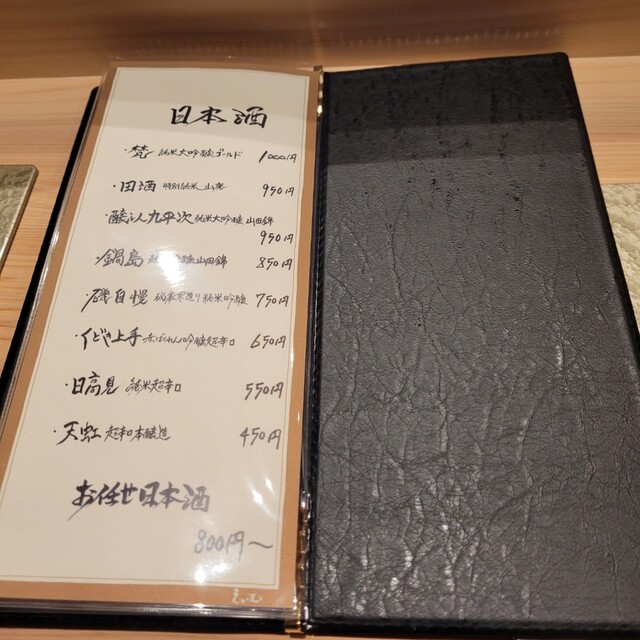 日本酒
・梵 純米大吟醸ゴールド 1000円
・田酒 特別純米 山廃 950円
・醸し人九平次 純米大吟醸 山田錦
950円
・鍋島 吟醸山田錦 850円
・磯自慢 純米吟醸 750円
・くどき上手 ばくれん吟醸超辛口 650円
・日高見 純米超辛口 550円
・天虹 超辛口本醸造 450円
お任せ日本酒
800円〜